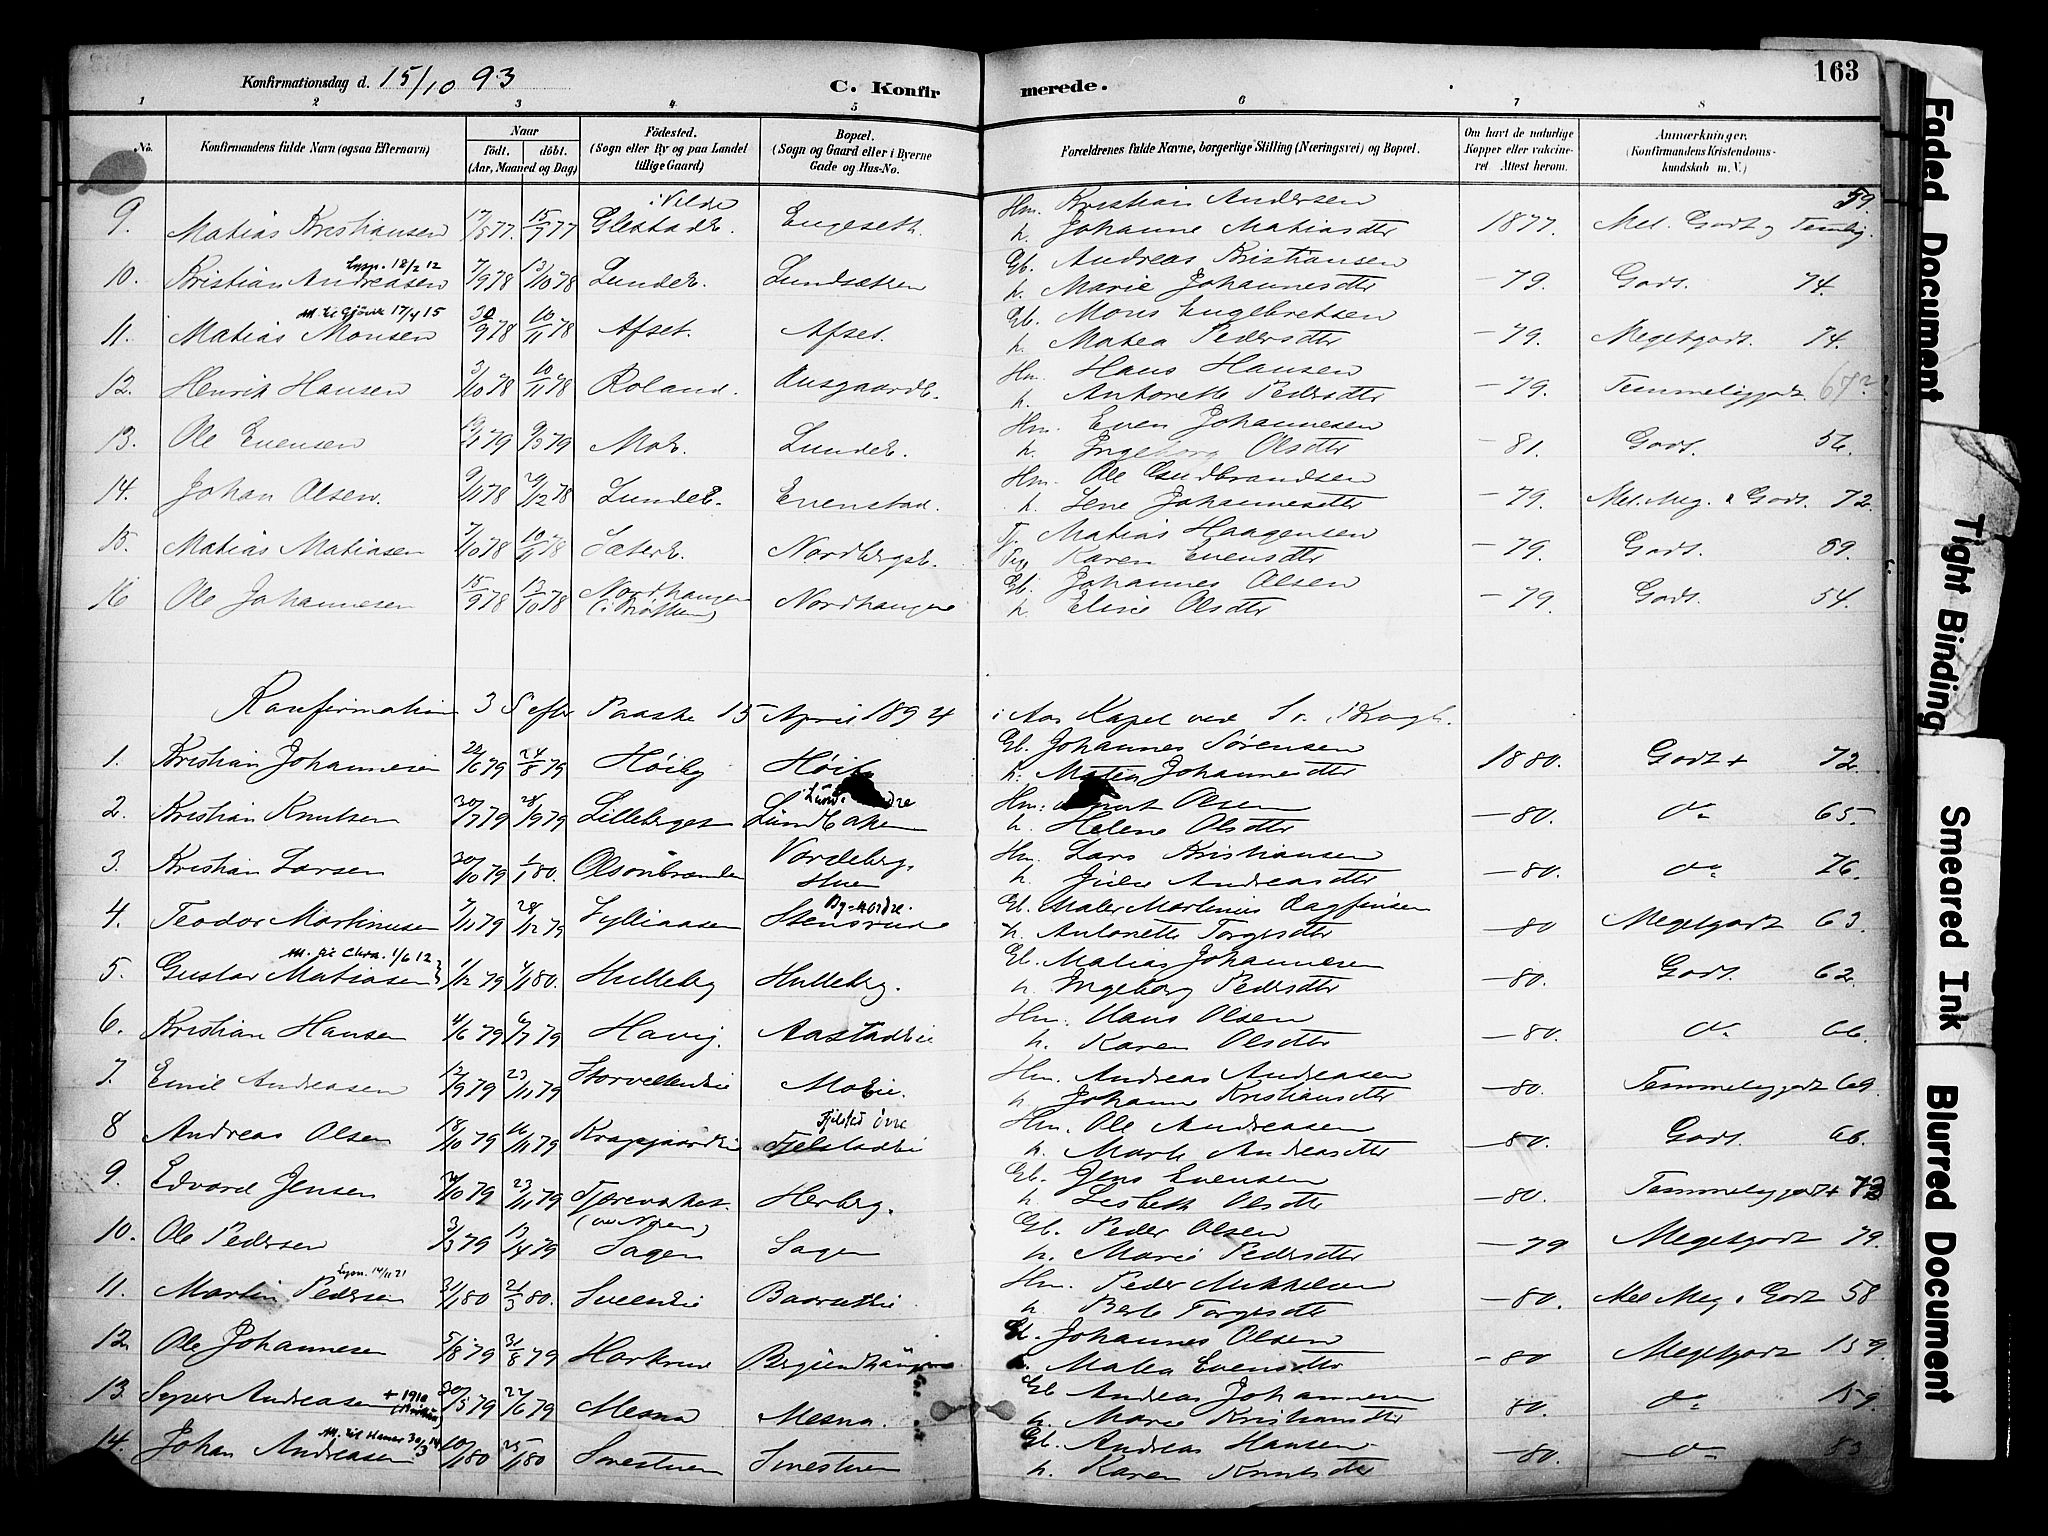 163
Konfirmationsdag d. 15/10 93
C. Konfirmerede.
1 2 3 4 5 6 7 8
No. Konfirmandens fulde Navn (ogsaa Efternavn) Naar født. døbt. (Aar, Maaned og Dag) Fødested. (Sogn eller By og paa Landet tillige Gaard) Bopæl. (Sogn og Gaard eller i Byerne Gade og Hus-No. Forældrenes fulde Navne, borgerlige Stilling (Næringsvei) og Bopæl. Om havt de naturlige Kopper eller vaccineret Attest herom. Anmærkninger. (Konfirmandens Kristendomskundskab m. V.)
9. Matias Kristiansen 17/5 77. 15/7 77 Engeseth. Hm. Kristian Andersen h. Johanne Matiasdtr 1877. Mel. Godt og Temlig. 59.
10. Kristian Andreasen 7/9 78 13/10 78 Lunde. Lundsætren Gb. Andreas Kristiansen h. Marie Johannesdtr - 79. Godt. 74.
11. Matias Monsen 30/9 78 10/11 78 Afset. Afset. Gb. Mons Engebretsen h. Matea Pedersdtr - 79. Megetgodt. 74.
12. Henrik Hansen 3/10 78 10/11 78 Roland. Hm. Hans Hansen h. Antonette Pedersdtr - 79. Temmeliggodt.
13. Ole Evensen 9/3 79 Hm. Even Johannesen h. Ingeborg Olsdtr - 81. Godt. 56.
14. Johan Olsen 9/11 78 29/12 78 Evenstad. Hm. Ole Gudbrandsen h. Lene Johannesdtr - 79. Mel. Meg. & Godt. 72.
15. Matias Matiasen 7/10 78 10/11 78 Tj. Matias Haagensen Karen Evensdtr - 79. Godt. 89.
16 Ole Johannesen 15/9 78 13/10 78 Nordhaugen Nordhaugen Gb. Johannes Olsen h. Elise Olsdtr - 79. Godt. 54.
Konfirmation 3 S efter Paaske 15 April 1894 i Aas Kapel ved
1. Kristian Johannesen 22/6 79 24/8 79 Høiby Gb. Johannes Sørensen h. Johannesdtr 1880. Godt + 72.
2. Kristian Knutsen 30/7 79 28/9 79 Lillebergsen Hm. Olsen h. Helene Olsdtr - 80. do 65.
3. Kristian Larsen 30/10 79 1/1 80. Hm. Lars Kristiansen h. Julie Andreasdtr - 80. do 76.
4. Teodor Martinusen 7/11 79 28/12 79 Stensrud Gb. h. Antonette Torgersdtr - 80 Megetgodt 63.
M. til Chra. 1/6 12
5. Gustav Matiasen 1/12 79 80. Hulleberg Hulleberg. Gb. Matias Johannesen h. Ingeborg Pedersdtr - 80. Godt. 62.
6. Kristian Hansen 4/6 79 6/7 79 Havig. Aastadeie Hm. Hans Olsen h. Karen Olsdtr - 80. do 66.
7. Emil Andreasen 12/9 79 23/11 79 Moeie. Hm. Andreas Andreasen h. Johanne Kristiansdtr - 80. Temmeliggodt 69.
8 Andreas Olsen 18/10 79 16/11 79 Fjelstadeie Hm. Ole Andreasen h. Marte Andreasdtr - 80. Godt. 66.
9. Edvard Jensen 23/11 79 Herberg. Gb. Jens Evensen h. Lisbeth Olsdtr - 80. Temmeliggodt + 72
10. Ole Pedersen 3/3 79 13/4 79 Sagen Sagen Gb. Peder Olsen h. Marie Pedersdtr - 79 Megetgodt 79.
11. Martin Pedersen 3/1 80 21/3 80. Hm. Peder Mikkelsen h. Berte Torgersdtr - 80. Mel Meg. Godt 58
12. Ole Johannesen 5/8 79 31/8 79 Gb. Johannes Olsen h. Matea Evensdtr - 80 Megetgodt 159.
13. Syver Andreasen + 1910 30/5 79 22/6 79 Mesna Mesna. Gb Andreas Johannesen h. Marie Kristiansdtr 80. do 159.
14. Johan Andreasen 10/1 80 25/1 80 Smestuen Smestuen Gb. Andreas Hansen h. Karen Knutsdtr - 80. do 83
Faded Document
Tight Binding
Smeared Ink
Blurred Document